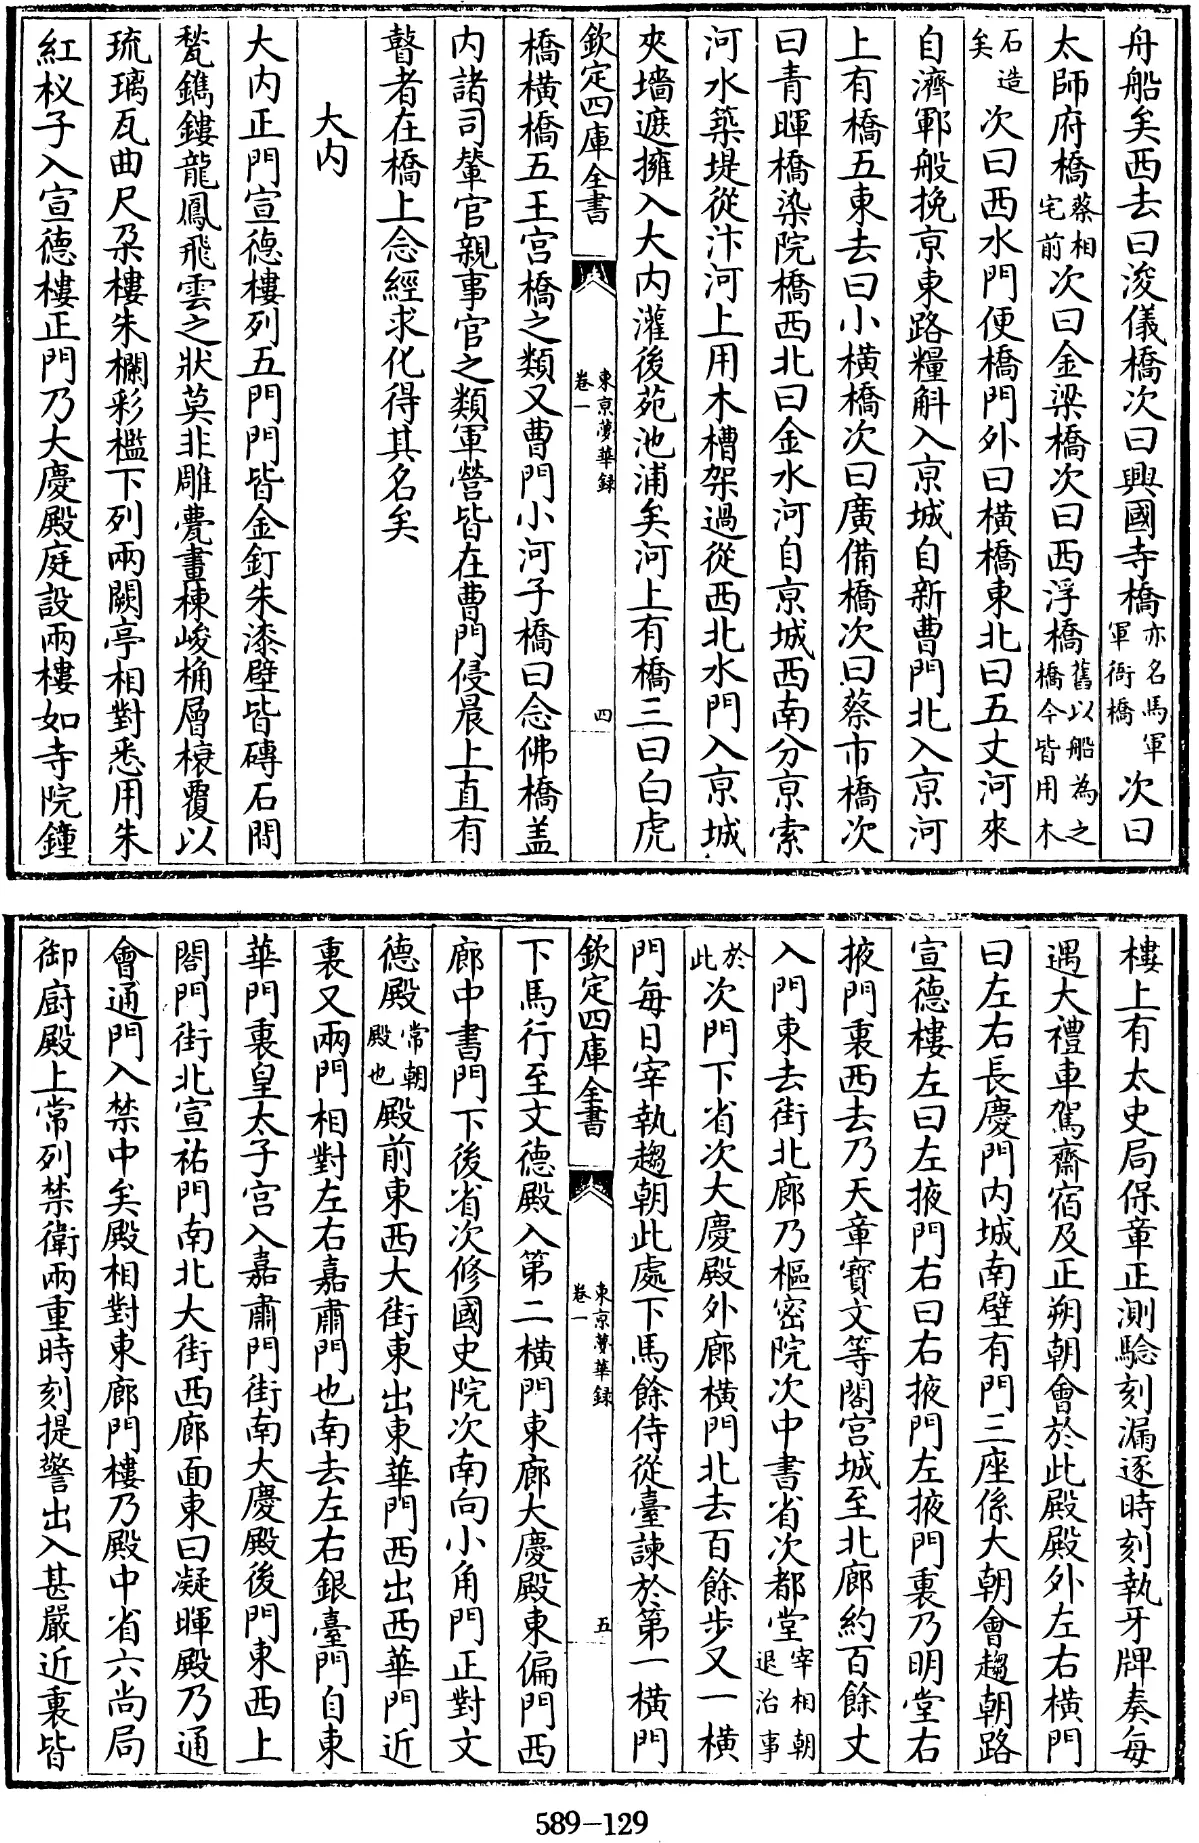 舟船矣西去曰浚儀橋次曰興國寺橋亦名馬軍軍衙橋次曰
太師府橋蔡相宅前次曰金梁橋次曰西浮橋舊以船為之橋今皆用木
石造矣次曰西水門便橋門外曰橫橋東北曰五丈河來
自濟鄆般挽京東路糧斛入京城自新曹門北入京河
上有橋五東去曰小橫橋次曰廣備橋次曰蔡市橋次
曰青暉橋染院橋西北曰金水河自京城西南分京索
河水築堤從汴河上用木槽架過從西北水門入京城
夾墻遮擁入大內灌後苑池浦矣河上有橋三曰白虎
欽定四庫全書
東京夢華録
卷一
四
橋橫橋五王宫橋之類又曹門小河子橋曰念佛橋盖
內諸司輦官親事官之類軍營皆在曹門侵晨上直有
瞽者在橋上念經求化得其名矣
大內
大內正門宣德樓列五門門皆金釘朱漆壁皆磚石間
甃鐫鏤龍鳳飛雲之狀莫非雕甍畫棟峻桷層榱覆以
琉璃瓦曲尺朶樓朱欄彩檻下列兩闕亭相對悉用朱
紅杈子入宣德樓正門乃大慶殿庭設兩樓如寺院鐘
樓上有太史局保章正測驗刻漏逐時刻執牙牌奏每
遇大禮車駕齋宿及正朔朝會於此殿殿外左右橫門
曰左右長慶門內城南壁有門三座係大朝會趨朝路
宣德樓左曰左掖門右曰右掖門左掖門裏乃明堂右
掖門裏西去乃天章寶文等閣宫城至北廊約百餘丈
入門東去街北廊乃樞密院次中書省次都堂宰相朝退治事
於此次門下省次大慶殿外廊橫門北去百餘步又一橫
門每日宰執趨朝此處下馬餘侍從臺諫於第一橫門
欽定四庫全書
東京夢華録
卷一
五
下馬行至文德殿入第二橫門東廊大慶殿東偏門西
廊中書門下後省次修國史院次南向小角門正對文
德殿常朝殿也殿前東西大街東出東華門西出西華門近
裏又兩門相對左右嘉肅門也南去左右銀臺門自東
華門裏皇太子宫入嘉肅門街南大慶殿後門東西上
閤門街北宣祐門南北大街西廊面東曰凝暉殿乃通
會通門入禁中矣殿相對東廊門樓乃殿中省六尚局
御厨殿上常列禁衛兩重時刻提警出入甚嚴近裏皆
589-129